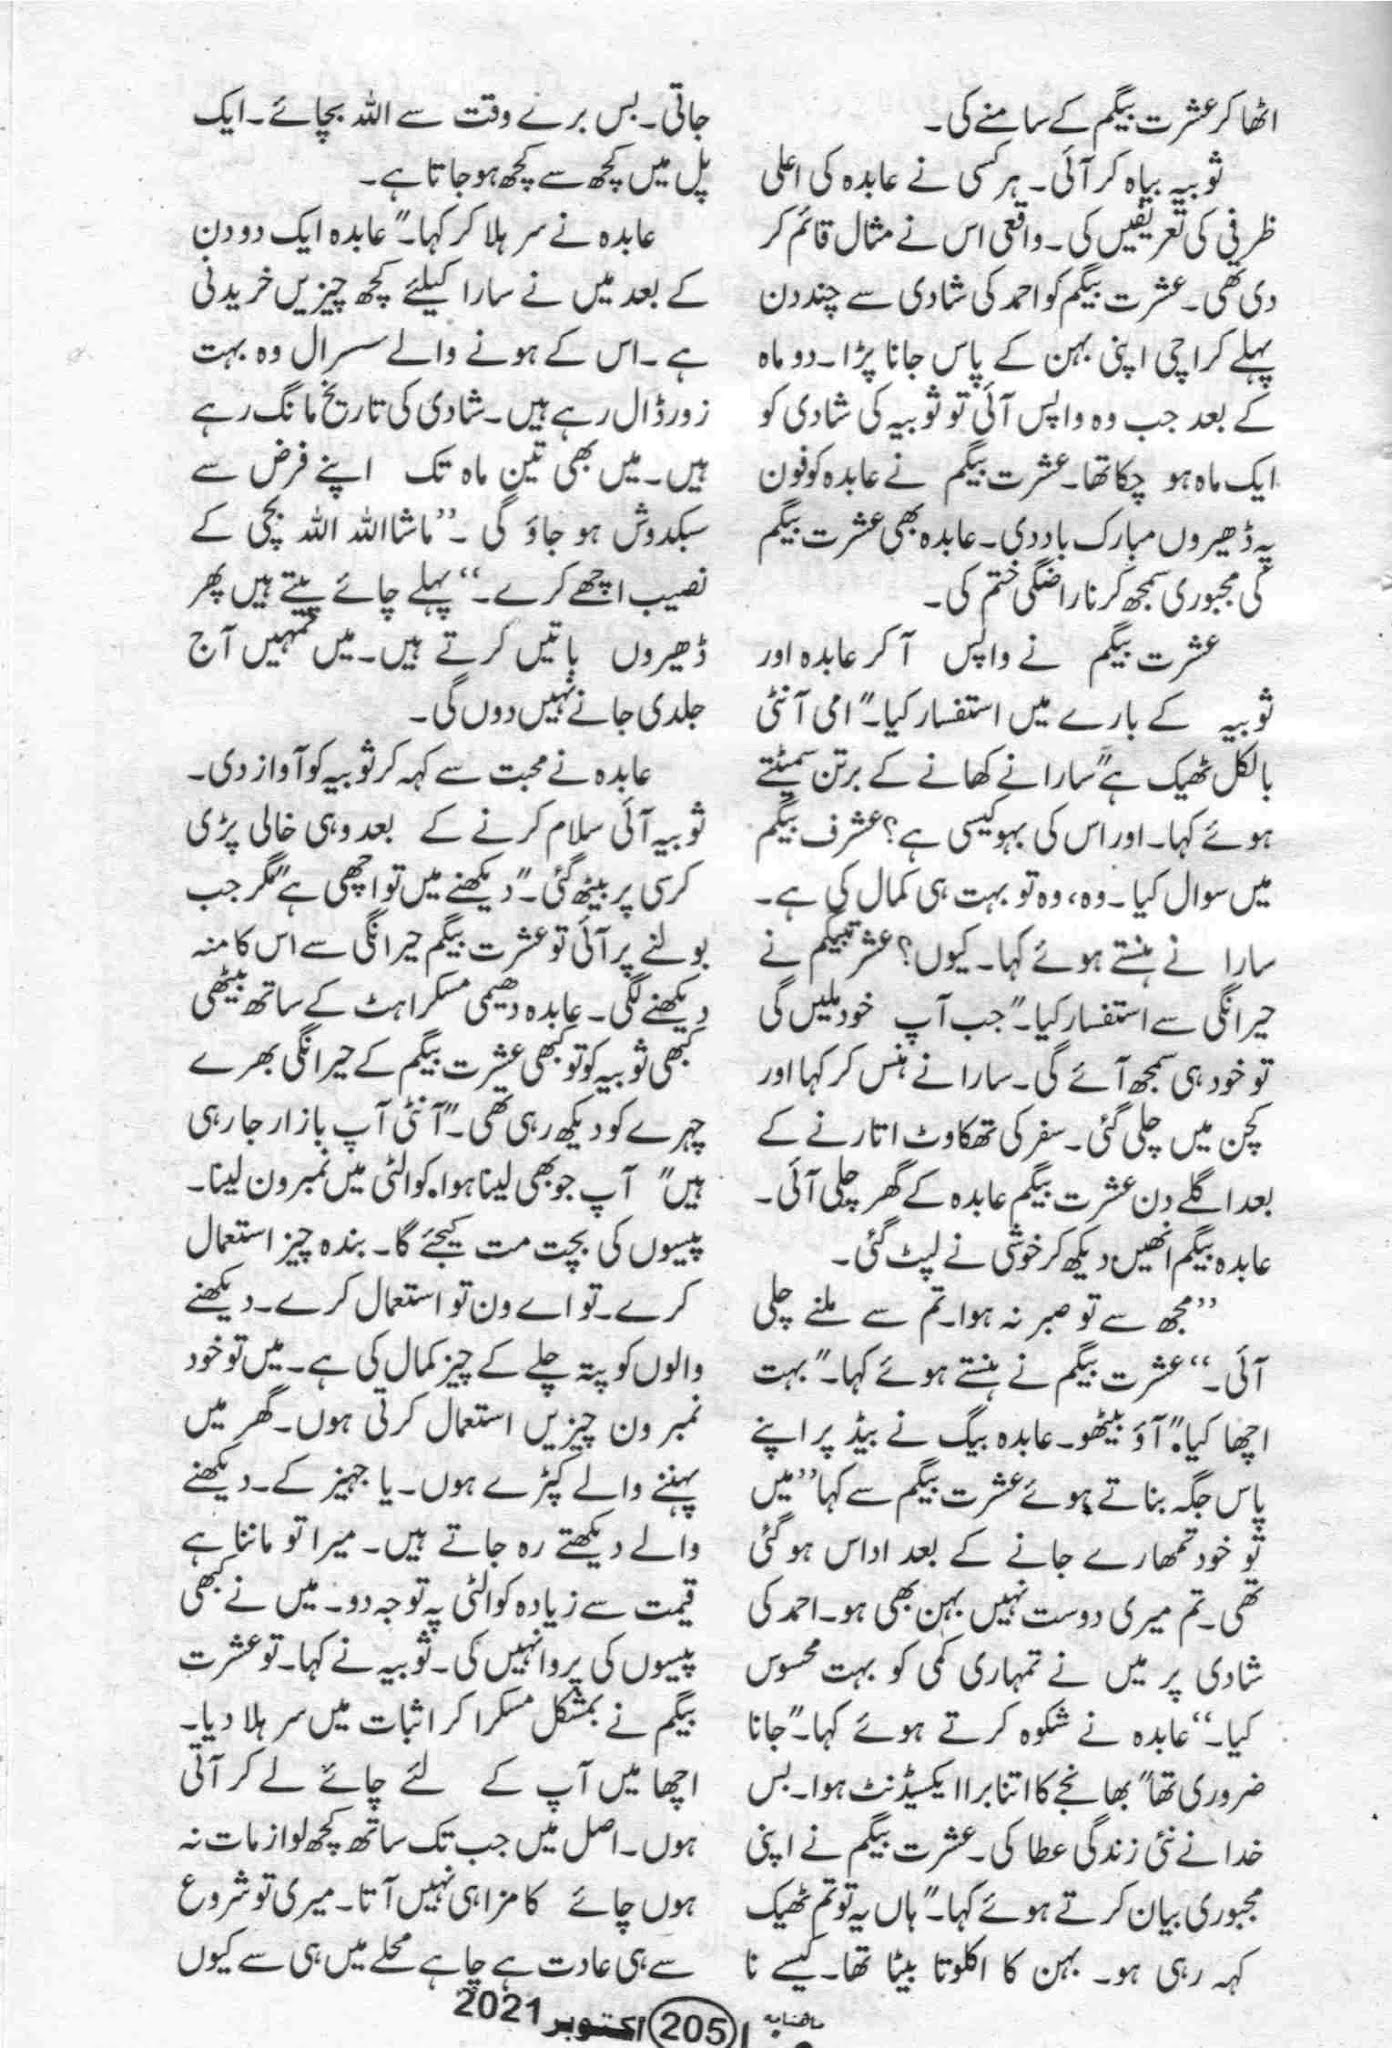 اٹھا کر عشرت بیگم کے سامنے کی۔
ثوبیہ بیاہ کر آئی۔ ہر کسی نے عابدہ کی اعلی
ظرفی کی تعریفیں کی۔ واقعی اس نے مثال قائم کر
دی تھی۔ عشرت بیگم کو احمد کی شادی سے چند دن
پہلے کراچی اپنی بہن کے پاس جانا پڑا۔ دو ماہ
کے بعد جب وہ واپس آئی تو ثوبیہ کی شادی کو
ایک ماہ ہو چکا تھا۔ عشرت بیگم نے عابدہ کو فون
پہ ڈھیروں مبارک باد دی۔ عابدہ بھی عشرت بیگم
کی مجبوری سمجھ کر ناراضگی ختم کی۔
عشرت بیگم نے واپس آ کر عابدہ اور
ثوبیہ کے بارے میں استفسار کیا۔"امی آنٹی
بالکل ٹھیک ہے"سارا نے کھانے کے برتن سمیٹتے
ہوئے کہا۔ اور اس کی بہو کیسی ہے؟ عشرف بیگم
میں سوال کیا۔ وہ، وہ تو بہت ہی کمال کی ہے۔
سارا نے ہنستے ہوئے کہا۔ کیوں؟ عشرتبیگم نے
حیرانگی سے استفسار کیا۔"جب آپ خود ملیں گی
تو خود ہی سمجھ آئے گی۔ سارا نے ہنس کر کہا اور
کچن میں چلی گئی۔ سفر کی تھکاوٹ اتارنے کے
بعد اگلے دن عشرت بیگم عابدہ کے گھر چلی آئی۔
عابدہ بیگم انھیں دیکھ کر خوشی نے لپٹ گئی۔
"مجھ سے تو صبر نہ ہوا۔ تم سے ملنے چلی
آئی۔" عشرت بیگم نے ہنستے ہوئے کہا۔" بہت
اچھا کیا۔" آؤ بیٹھو۔ عابدہ بیگ نے بیڈ پر اپنے
پاس جگہ بناتے ہوئے عشرت بیگم سے کہا"میں
تو خود تمھارے جانے کے بعد اداس ہو گئی
تھی۔ تم میری دوست نہیں بہن بھی ہو۔ احمد کی
شادی پر میں نے تمہاری کمی کو بہت محسوس
کیا۔" عابدہ نے شکوہ کرتے ہوئے کہا۔"جانا
ضروری تھا" بھانجے کا اتنا برا ایکسیڈنٹ ہوا۔ بس
خدا نے نئی زندگی عطا کی۔ عشرت بیگم نے اپنی
مجبوری بیان کرتے ہوئے کہا۔" ہاں یہ تو تم ٹھیک
کہہ رہی ہو۔ بہن کا اکلوتا بیٹا تھا۔ کیسے نا
جاتی۔ بس برے وقت سے اللہ بچائے۔ ایک
پل میں کچھ سے کچھ ہو جاتا ہے۔
عابدہ نے سر ہلا کر کہا۔" عابدہ ایک دو دن
کے بعد میں نے سارا کیلئے کچھ چیزیں خریدنی
ہے۔ اس کے ہونے والے سسرال وہ بہت
زور ڈال رہے ہیں۔ شادی کی تاریخ مانگ رہے
ہیں۔ میں بھی تین ماہ تک اپنے فرض سے
سبکدوش ہو جاؤ گی۔"ماشااللہ اللہ بچی کے
نصیب اچھے کرے۔" پہلے چائے پیتے ہیں پھر
ڈھیروں باتیں کرتے ہیں۔ میں تمہیں آج
جلدی جانے نہیں دوں گی۔
عابدہ نے محبت سے کہہ کر ثوبیہ کو آواز دی۔
ثوبیہ آئی سلام کرنے کے بعد وہی خالی پڑی
کرسی پر بیٹھ گئی۔" دیکھنے میں تو اچھی ہے"مگر جب
بولنے پر آئی تو عشرت بیگم حیرانگی سے اس کا منہ
دیکھنے لگی۔ عابدہ دھیمی مسکراہٹ کے ساتھ بیٹھی
کبھی ثوبیہ کو تو کبھی عشرت بیگم کے حیرانگی بھرے
چہرے کو دیکھ رہی تھی۔"آنٹی آپ بازار جا رہی
ہیں" آپ جو بھی لینا ہواہ کوالٹی میں نمبر ون لینا۔
پیسوں کی بچت مت کیجئے گا۔ بندہ چیز استعمال
کرے۔ تو اے ون تو استعمال کرے۔ دیکھنے
والوں کو پتہ چلے کے چیز کمال کی ہے۔ میں تو خود
نمبر ون چیزیں استعمال کرتی ہوں۔ گھر میں
پہننے والے کپڑے ہوں۔ یا جہیز کے۔ دیکھنے
والے دیکھتے رہ جاتے ہیں۔ میرا تو ماننا ہے
قیمت سے زیادہ کوالٹی پہ توجہ دو۔ میں نے کبھی
پیسوں کی پروا نہیں کی۔ ثوبیہ نے کہا۔ تو عشرت
بیگم نے بمشکل مسکرا کر اثبات میں سر ہلا دیا۔
اچھا میں آپ کے لئے چائے لے کر آتی
ہوں۔ اصل میں جب تک ساتھ کچھ لوازمات نہ
ہوں چائے کا مزا ہی نہیں آتا۔ میری تو شروع
سے ہی عادت ہے چاہے محلے میں ہی سے کیوں
ماھنامہ
205 اکتوبر 2021